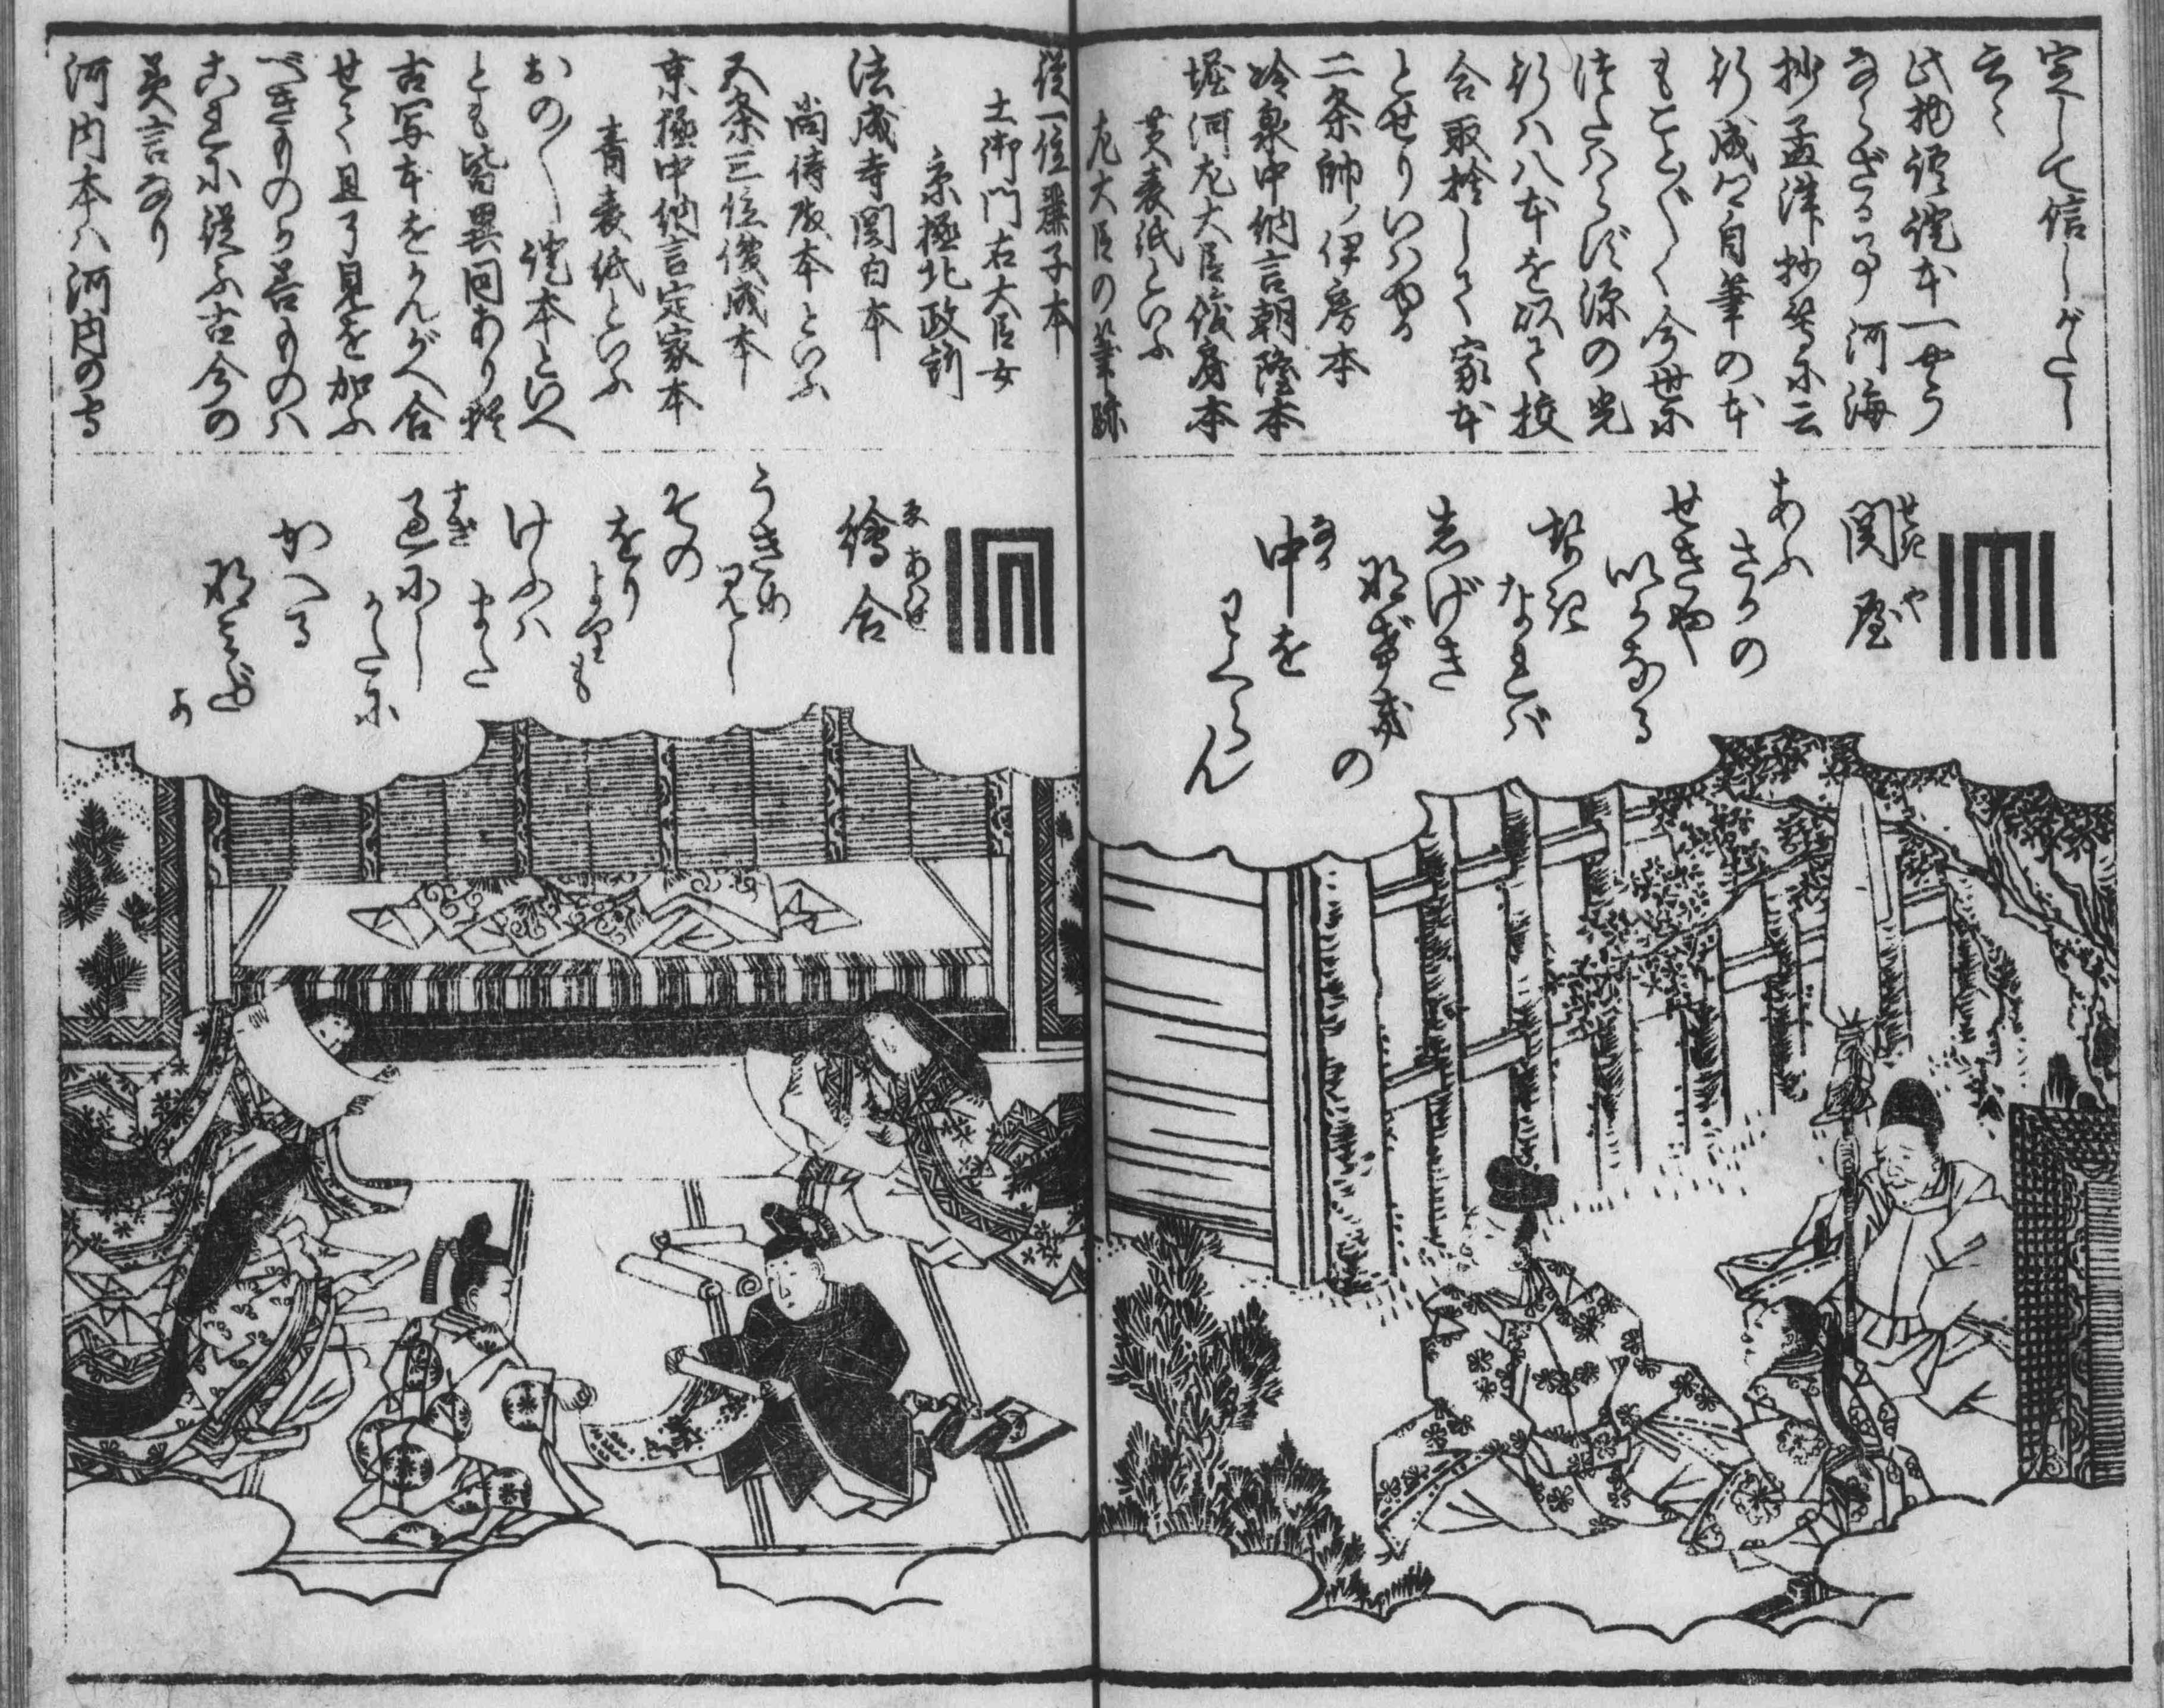 定しがたし
云々
此物語証本一やう
ならざる事河海
抄孟津抄等に云
行成卿自筆の本
もことごとく今世に
つたはらず源の光
行ハ八本を以て校
合取捨して家本
とせりいはゆる
二条帥ノ伊房本
冷泉中納言朝隆本
堀河左大臣俊房本
黄表紙といふ
左大臣の筆跡
従一位麗子本
土御門右大臣女
京極北政所
法成寺関白本
尚侍殿本といふ
五条三位俊成本
京極中納言定家本
青表紙といふ
おの〳〵証本といへ
とも皆異同あり
古写本をかんがへ合
せて且了見を加ふ
べきものか善ものハ
これに従ふ古今の
美言なり
河内本ハ河内の守
関屋
せきや
あふ
さかの
せきや
いかなる
せき
なれば
しげき
なげきの
中を
なか
わくらん
繪合
ゑあはせ
うきめ
見し
その
をり
よりも
けふハ
また
過にし
すぎ
かたに
かへる
なみだ
か